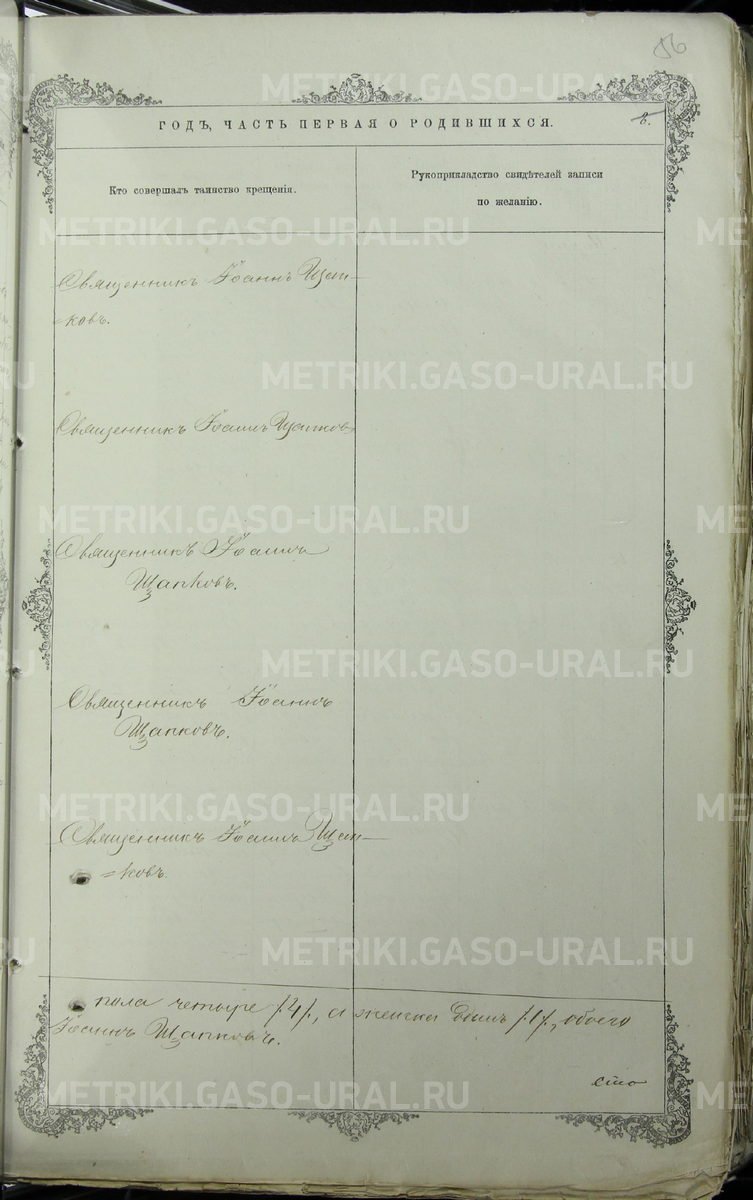 86
ГОДЪ, ЧАСТЬ ПЕРВАЯ О РОДИВШИХСЯ.
8.
Кто совершалъ таинство крещенія.
Рукоприкладство свидѣтелей записи
по желанію.
Священникъ Іоаннъ Щап-
=ковъ.
Священникъ Іоаннъ Щапковъ
Священникъ Іоаннъ
Щапковъ.
Священникъ Іоаннъ
Щапковъ.
Священникъ Іоаннъ Щап-
=ковъ.
пола четыре /4/, а женска одинъ /1/, обоего
Іоаннъ Щапковъ.
METRIKI.GASO-URAL.RU